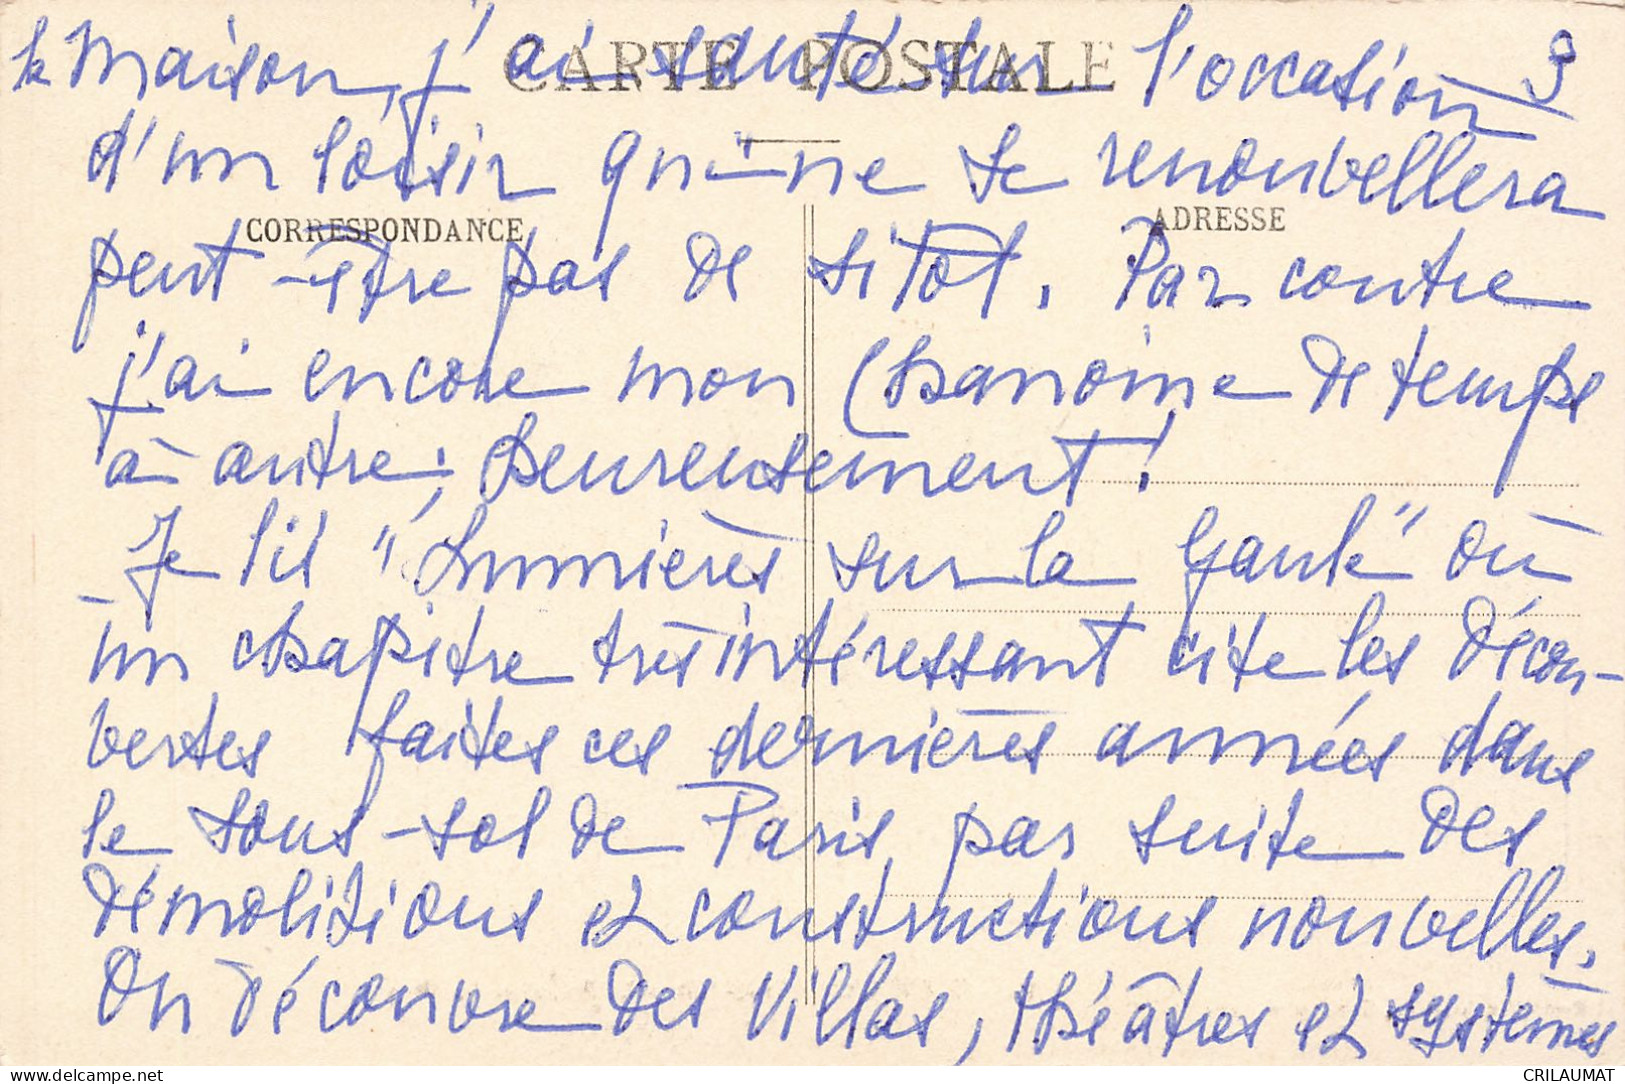 la maison, j'ai sauté sur l'occasion 3
CARTE POSTALE
d'un loisir qui ne se renouvellera
CORRESPONDANCE
ADRESSE
peut-être pas de sitôt. Par contre
j'ai encore mon Chanoine de temps
à autre, heureusement !
Je lis "Lumières sur la Gaule" où
un chapitre très intéressant cite les décou-
vertes faites ces dernières années dans
le sous-sol de Paris, par suite des
démolitions et constructions nouvelles.
On découvre des villas, théâtres et systèmes
delcampe.net
CRILAUMAT